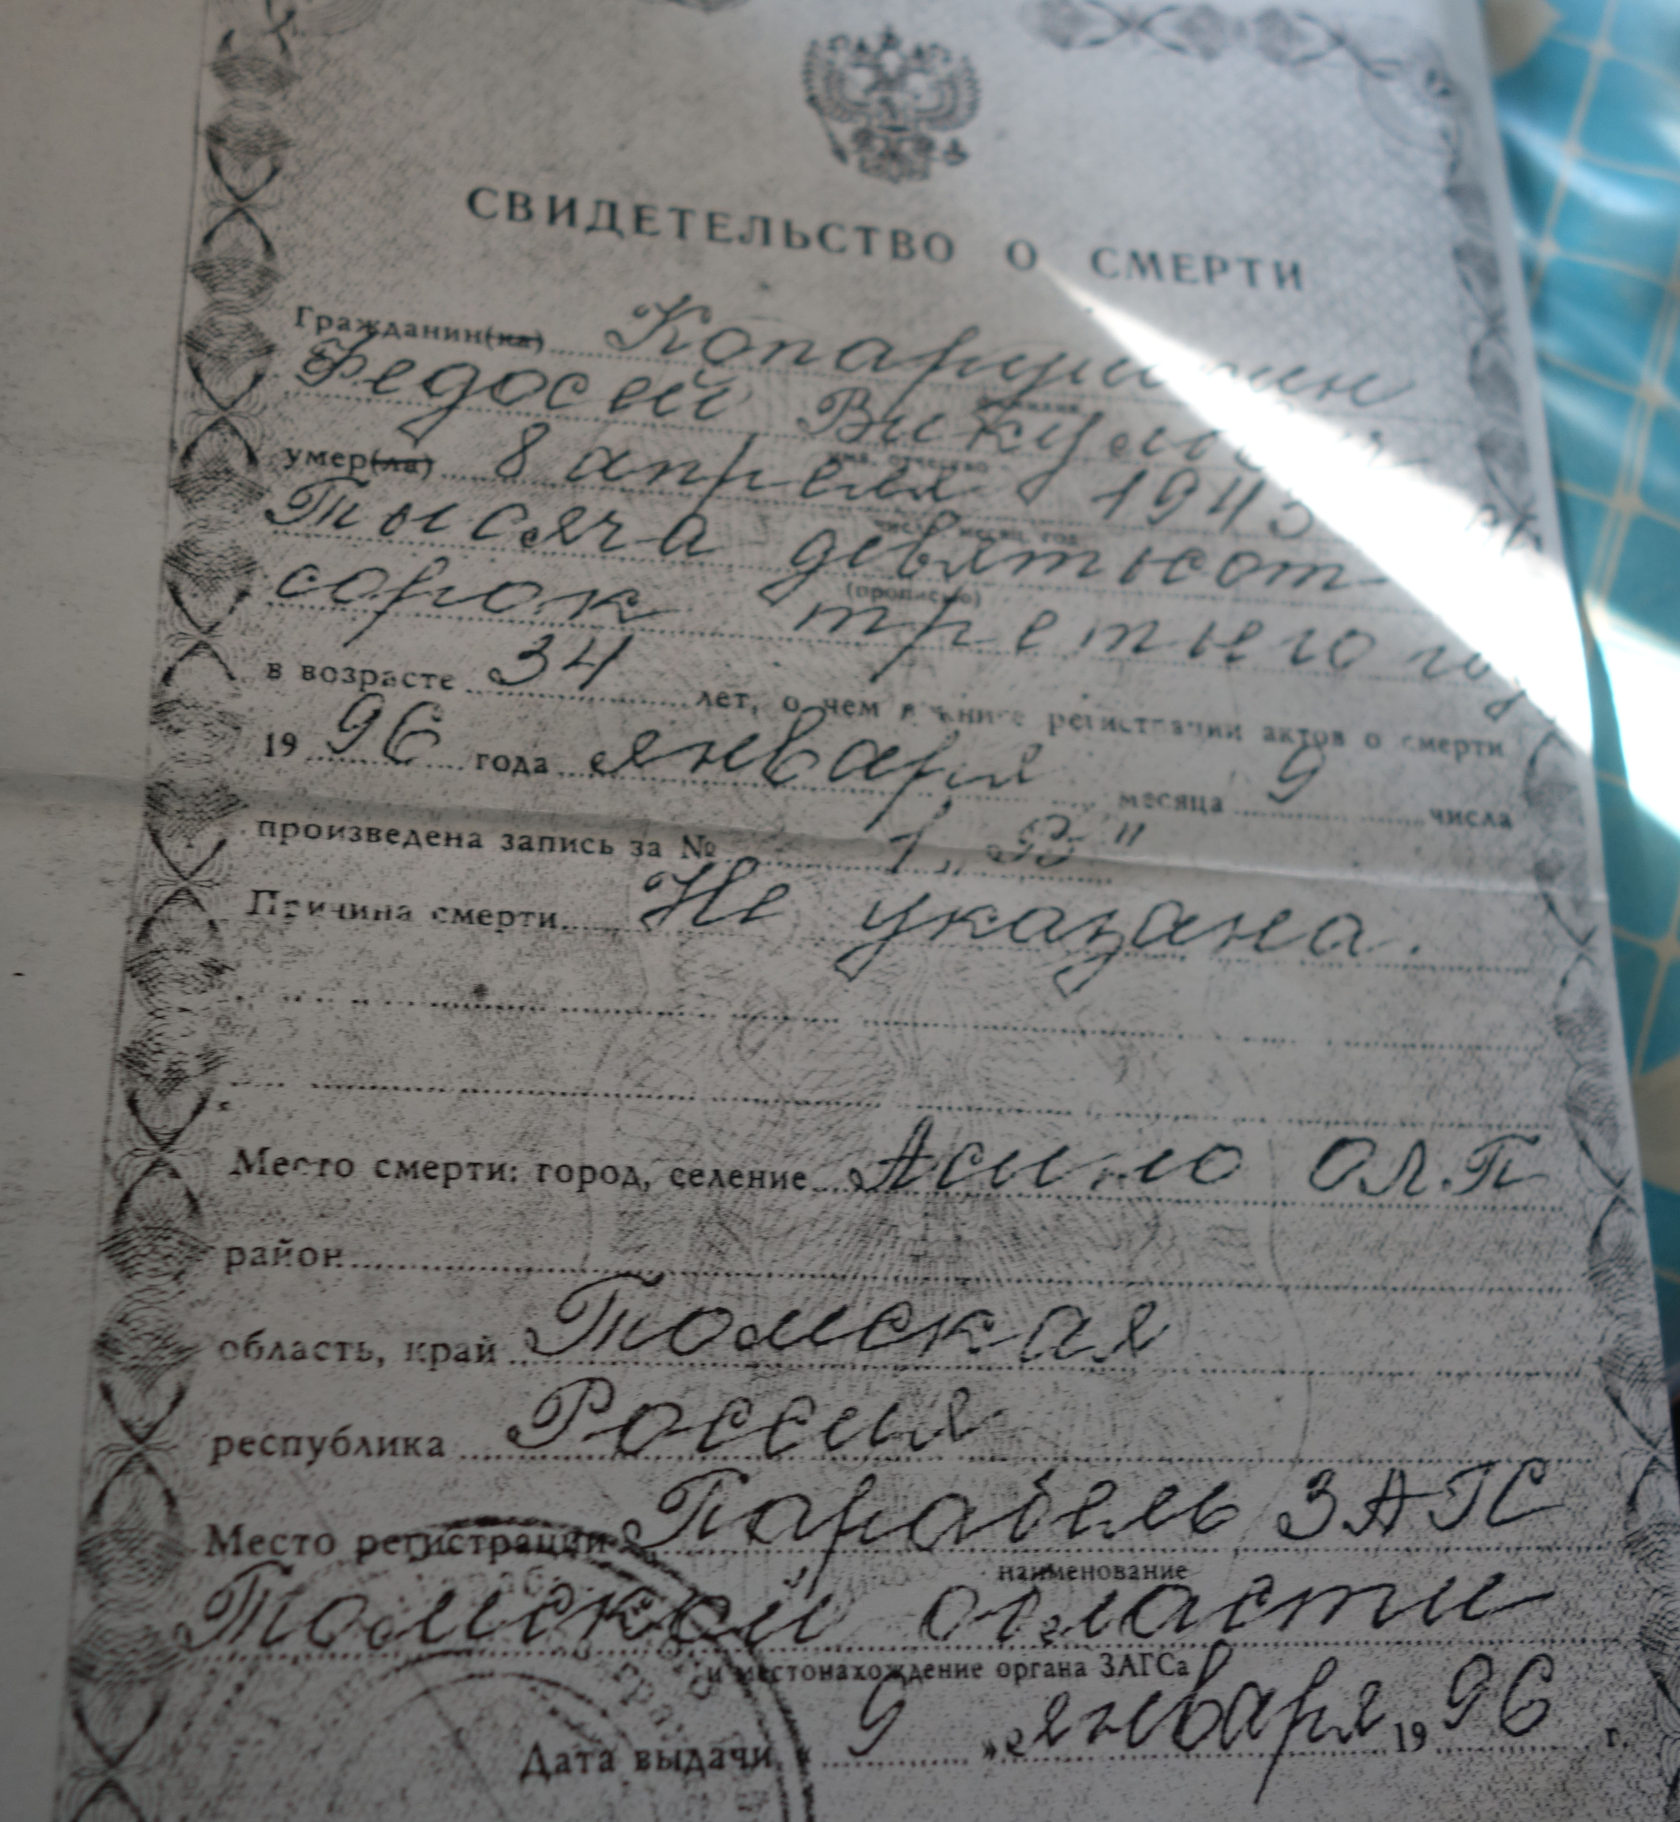 СВИДЕТЕЛЬСТВО О СМЕРТИ
Гражданин(ка)
фамилия
Федосей
имя, отчество
умер(ла) 8 апреля 1943
число, месяц, год
Тысяча девятьсот
(прописью)
сорок третьего
в возрасте 34 лет, о чем в книге регистрации актов о смерти
19 96 года января месяца 9 числа
произведена запись за № 1
Причина смерти Не указана.
Место смерти: город, селение Асино ОЛ.П
район
область, край Томская
республика Россия
Место регистрации Парабель ЗАГС
наименование
Томской области
и местонахождение органа ЗАГСа
Дата выдачи « 9 » января 19 96 г.